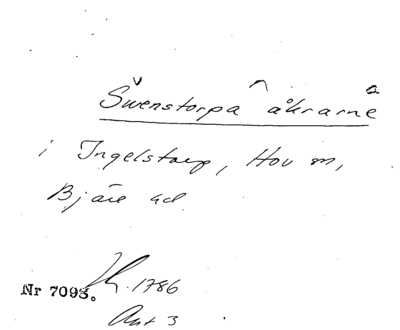 Swenstorpa åkrarne
i Ingelstorp, Hov sn,
Bjäre hd.
Nr 7093. 1786
Akt 3